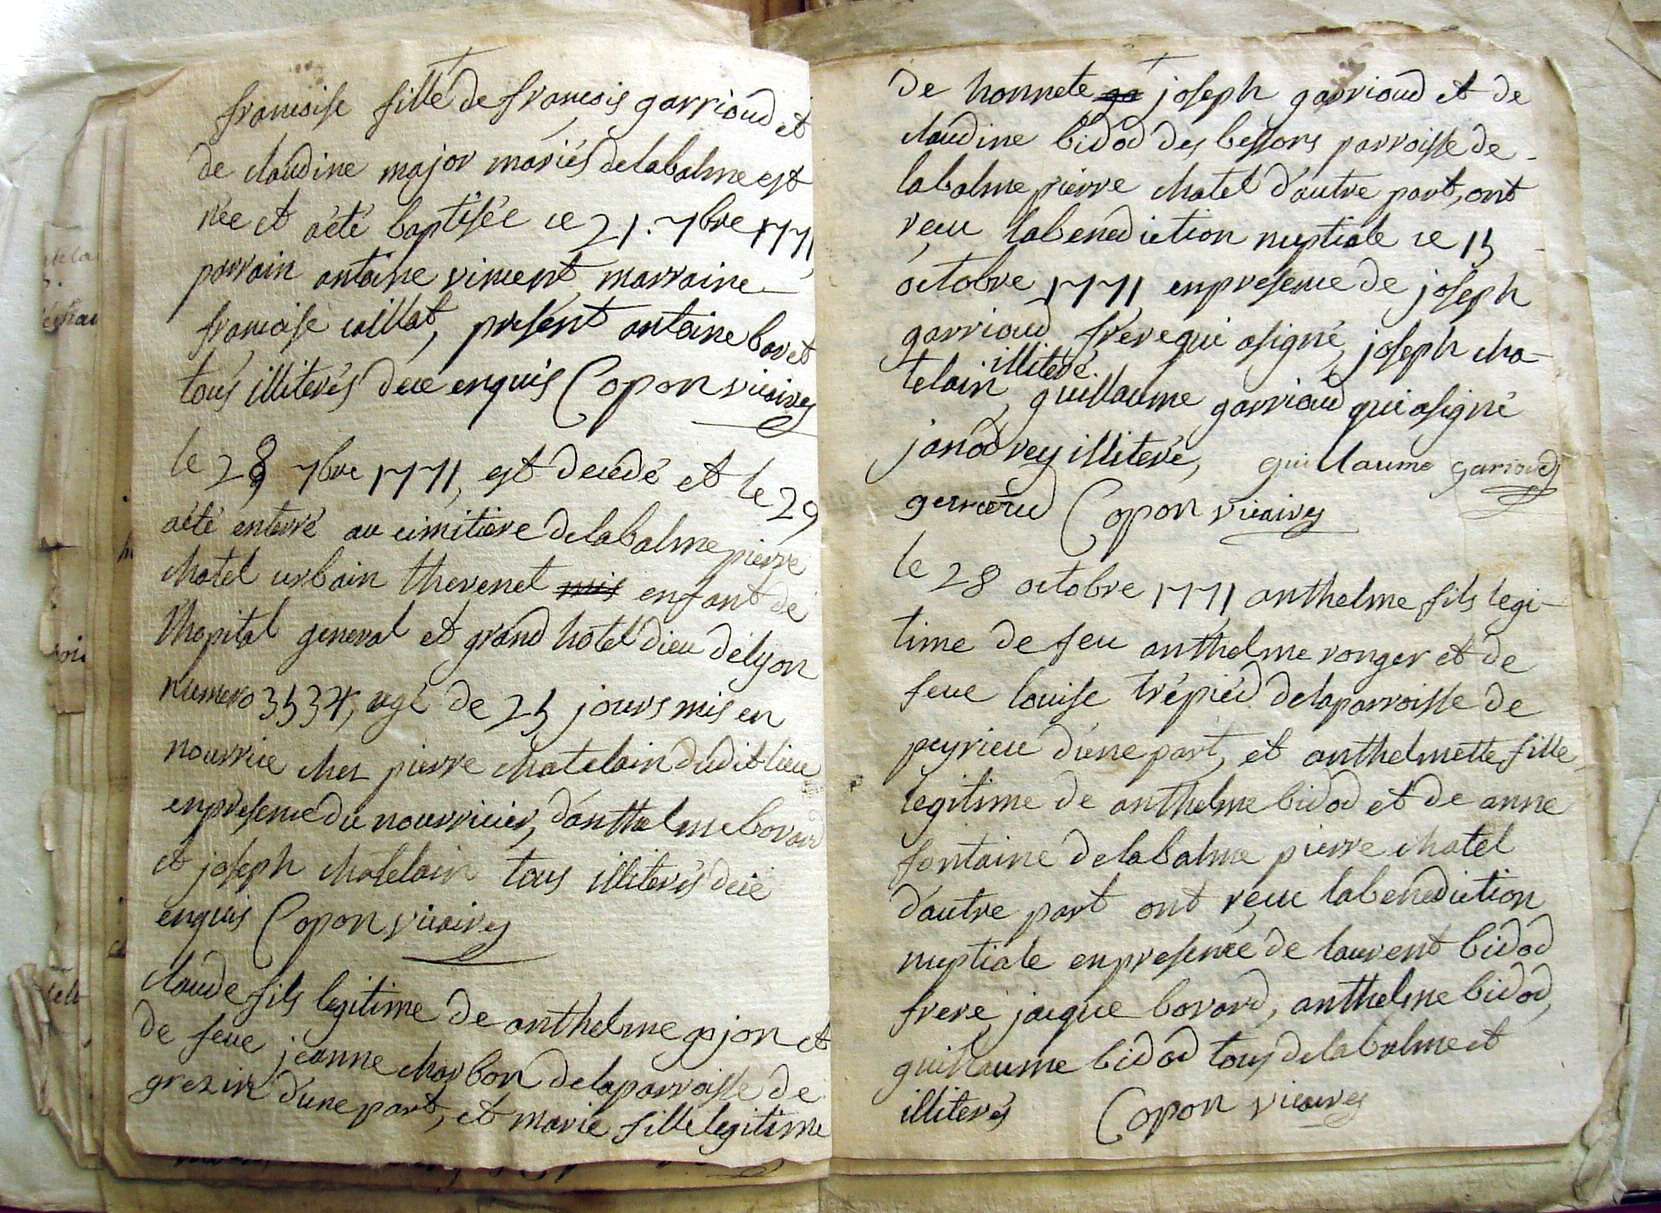 francoise fille de francois garrioud et
de claudine major mariés delabalme est
née et aété baptisée ce 21. 7bre 1771
parrain antoine vincent, marraine
francoise caillat, présent antoine bovet
tous illiterés dece enquis Copon vicaire
le 28 7bre 1771, est decedé et le 29
aété enterré au cimitiere delabalme pierre
chatel urbain thevenet mis enfant de
l'hopital general et grand hotel dieu délyon
numero 3534, agé de 25 jours mis en
nourrice chez pierre chatelain dudit lieu
enpresence du nourricier, d'anthelme bovard
et joseph chatelain tous illiterés dece
enquis Copon vicaire
claude fils legitime de anthelme gojon et
de feue jeanne charbon delaparroisse de
grezin d'une part, et marie fille legitime
de honnete ga joseph garrioud et de
claudine bidod des bessons parroisse de
labalme pierre chatel d'autre part, ont
reçu labenediction nuptiale ce 15
octobre 1771 enpresence de joseph
garrioud frere qui asigné, joseph cha-
telain illiteré guillaume garrioud qui asigné
janod rey illiteré, guillaume garioud
Copon vicaire
le 28 octobre 1771 anthelme fils legi-
time de feu anthelme ronger et de
feue louise trépied delaparroisse de
peyrieu d'une part, et anthelmette fille
legitime de anthelme bidod et de anne
fontaine delabalme pierre chatel
d'autre part ont reçu labenediction
nuptiale enpresence de laurent bidod
frere, jacque bovard, anthelme bidod,
guillaume bidod tous delabalme et
illiterés Copon vicaire